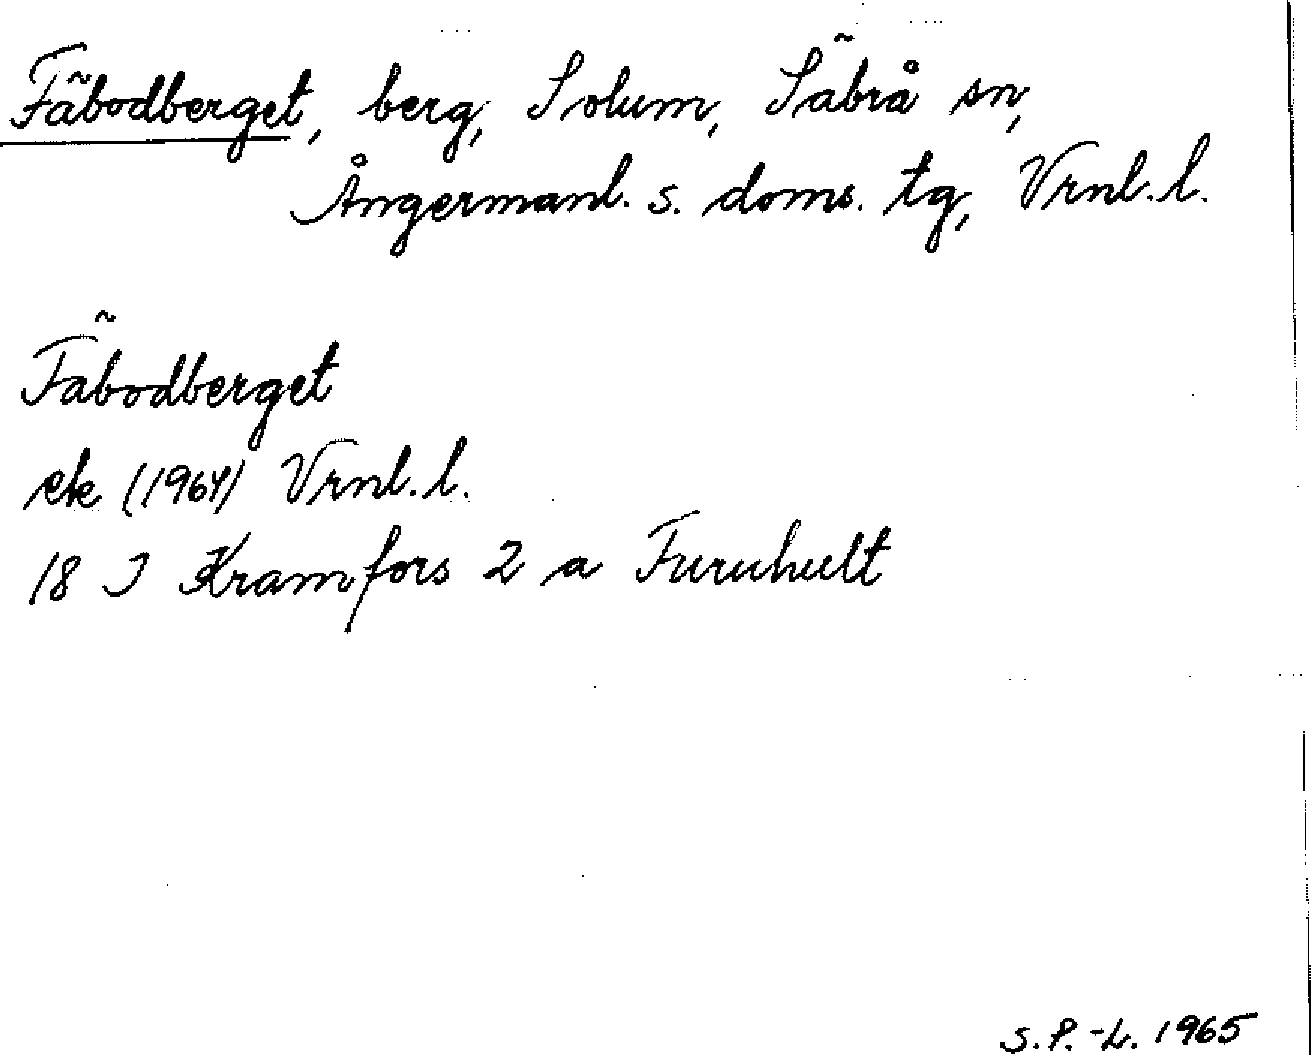 Fäbodberget, berg, Solum, Säbrå sn,
Ångermanl. s. doms. tg, Vrnl. l.
Fäbodberget
ek (1964) Vrnl. l.
18 I Kramfors 2 a Furuhult
S. P.-L. 1965